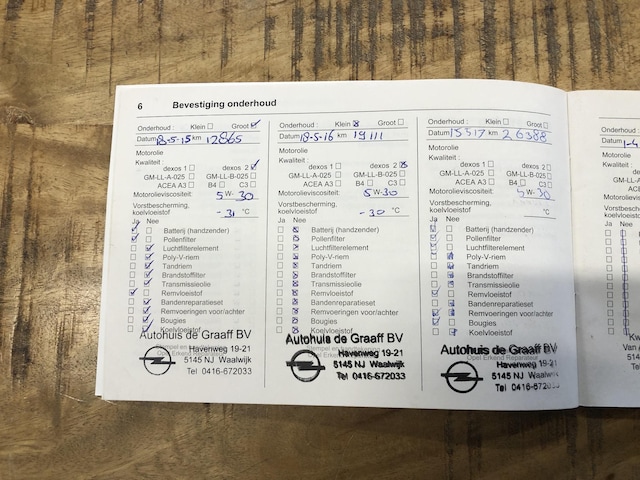 6 Bevestiging onderhoud
Onderhoud : Klein Groot
Datum 18-5-15 km 12865
Motorolie
Kwaliteit :
dexos 1 dexos 2
GM-LL-A-025 GM-LL-B-025
ACEA A3 B4 C3
Motorolieviscositeit: 5 W- 30
Vorstbescherming,
koelvloeistof -31 °C
Ja Nee
Batterij (handzender)
Pollenfilter
Luchtfilterelement
Poly-V-riem
Tandriem
Brandstoffilter
Transmissieolie
Remvloeistof
Bandenreparatieset
Remvoeringen voor/achter
Bougies
Koelvloeistof
Autohuis de Graaff BV
Havenweg 19-21
5145 NJ Waalwijk
Tel 0416-672033
Onderhoud : Klein Groot
Datum 18-5-16 km 19111
Motorolie
Kwaliteit :
dexos 1 dexos 2
GM-LL-A-025 GM-LL-B-025
ACEA A3 B4 C3
Motorolieviscositeit: 5 W-30
Vorstbescherming,
koelvloeistof -30 °C
Ja Nee
Batterij (handzender)
Pollenfilter
Luchtfilterelement
Poly-V-riem
Tandriem
Brandstoffilter
Transmissieolie
Remvloeistof
Bandenreparatieset
Remvoeringen voor/achter
Bougies
Koelvloeistof
Autohuis de Graaff BV
Havenweg 19-21
5145 NJ Waalwijk
Tel 0416-672033
Onderhoud : Klein Groot
Datum 15517 km 26388
Motorolie
Kwaliteit :
dexos 1 dexos 2
GM-LL-A-025 GM-LL-B-025
ACEA A3 B4 C3
Motorolieviscositeit: 5 W-30
Vorstbescherming,
koelvloeistof °C
Ja Nee
Batterij (handzender)
Pollenfilter
Luchtfilterelement
Poly-V-riem
Tandriem
Brandstoffilter
Transmissieolie
Remvloeistof
Bandenreparatieset
Remvoeringen voor/achter
Bougies
Koelvloeistof
Autohuis de Graaff BV
Havenweg 19-21
5145 NJ Waalwijk
Tel 0416-672033